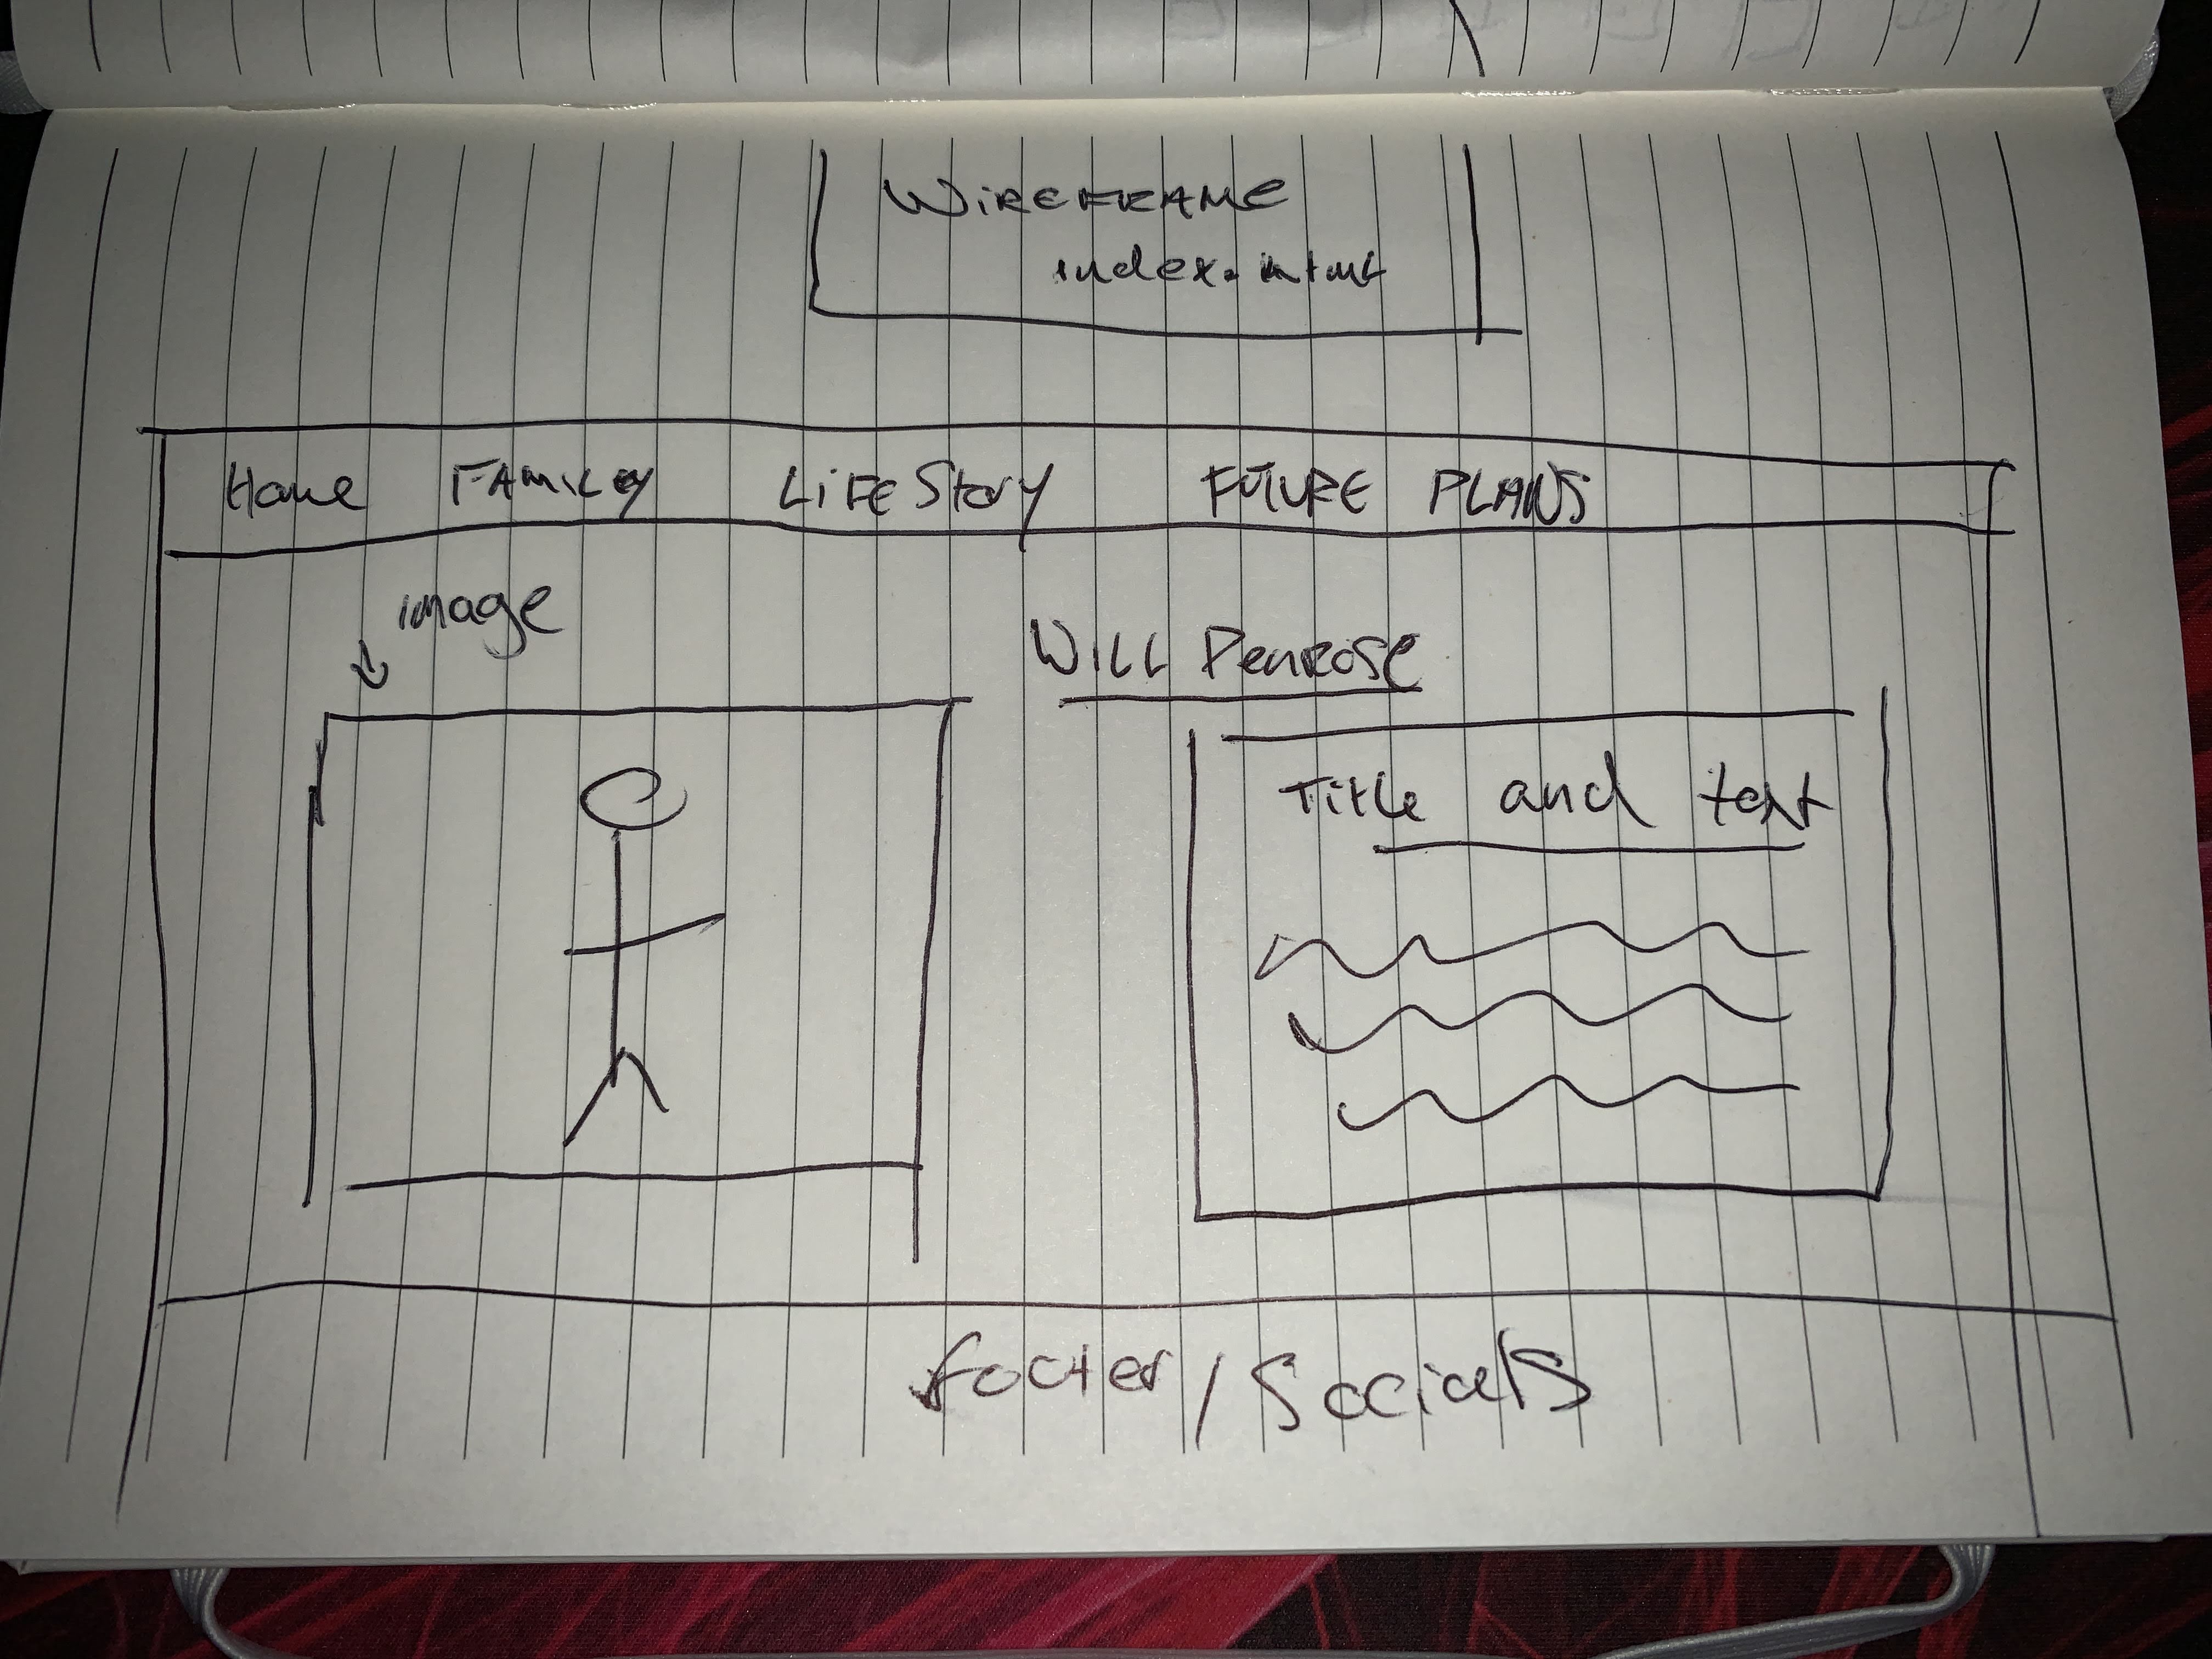 WIREFRAME
index.html
Home FAMiLy LiFE Story FUTURE PLANS
image
WiLL Penrose
TiTLe and text
footer / Socials